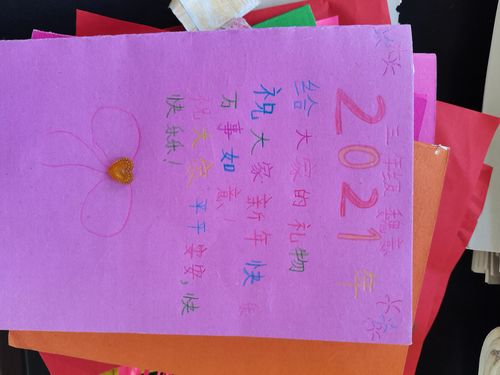 三年级
2021年
给大家的礼物
祝大家新年快乐
万事如意!
祝大家平平安安,快
快乐乐!